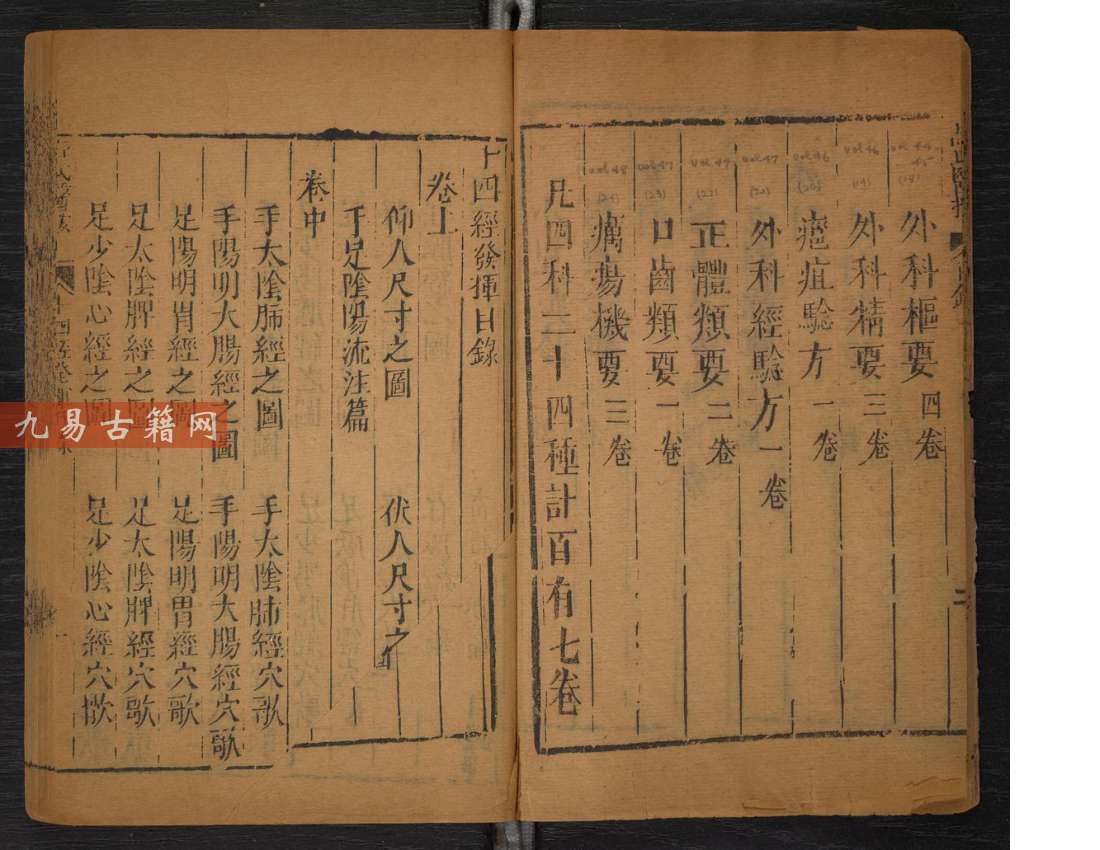 外科樞要四卷
外科精要三卷
瘡疽驗方一卷
外科經驗方一卷
正體類要二卷
口齒類要一卷
癘瘍機要三卷
凡四科二十四種計百有七卷
vol 46
vol 46
vol 47
vol 47
vol 47
vol 48
(19)
(20)
(21)
(22)
(23)
(24)
十四經發揮目錄
卷上
仰人尺寸之圖 伏人尺寸之
手足陰陽流注篇
卷中
手太陰肺經之圖 手太陰肺經穴歌
手陽明大腸經之圖 手陽明大腸經穴歌
足陽明胃經之圖 足陽明胃經穴歌
足太陰脾經之圖 足太陰脾經穴歌
足少陰心經之圖 足少陰心經穴歌
九易古籍网